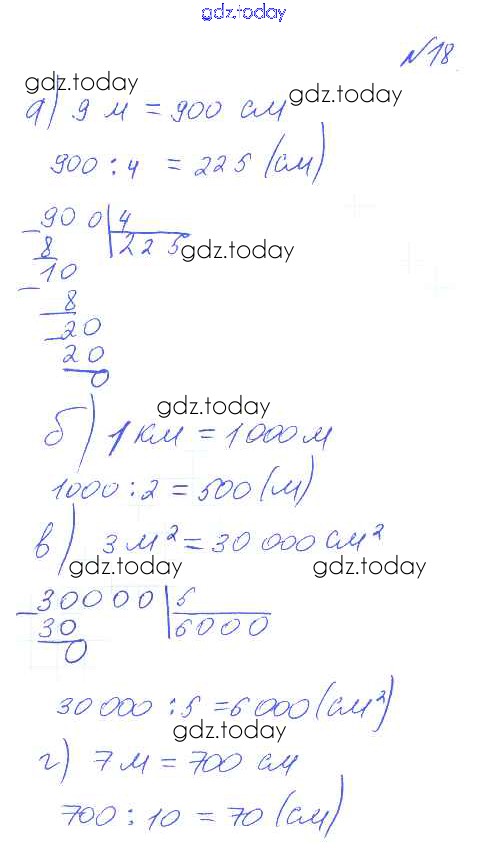 gdz.today
№18.
gdz.today gdz.today
а) 9 м = 900 см
900 : 4 = 225 (см)
900 | 4
8 225
gdz.today
10
8
20
20
0
gdz.today
б) 1 км = 1000 м
1000 : 2 = 500 (м)
в) 3 м² = 30 000 см²
gdz.today gdz.today
30000 | 5
30 6000
0
30 000 : 5 = 6 000 (см²)
gdz.today
г) 7 м = 700 см
700 : 10 = 70 (см)
gdz.today